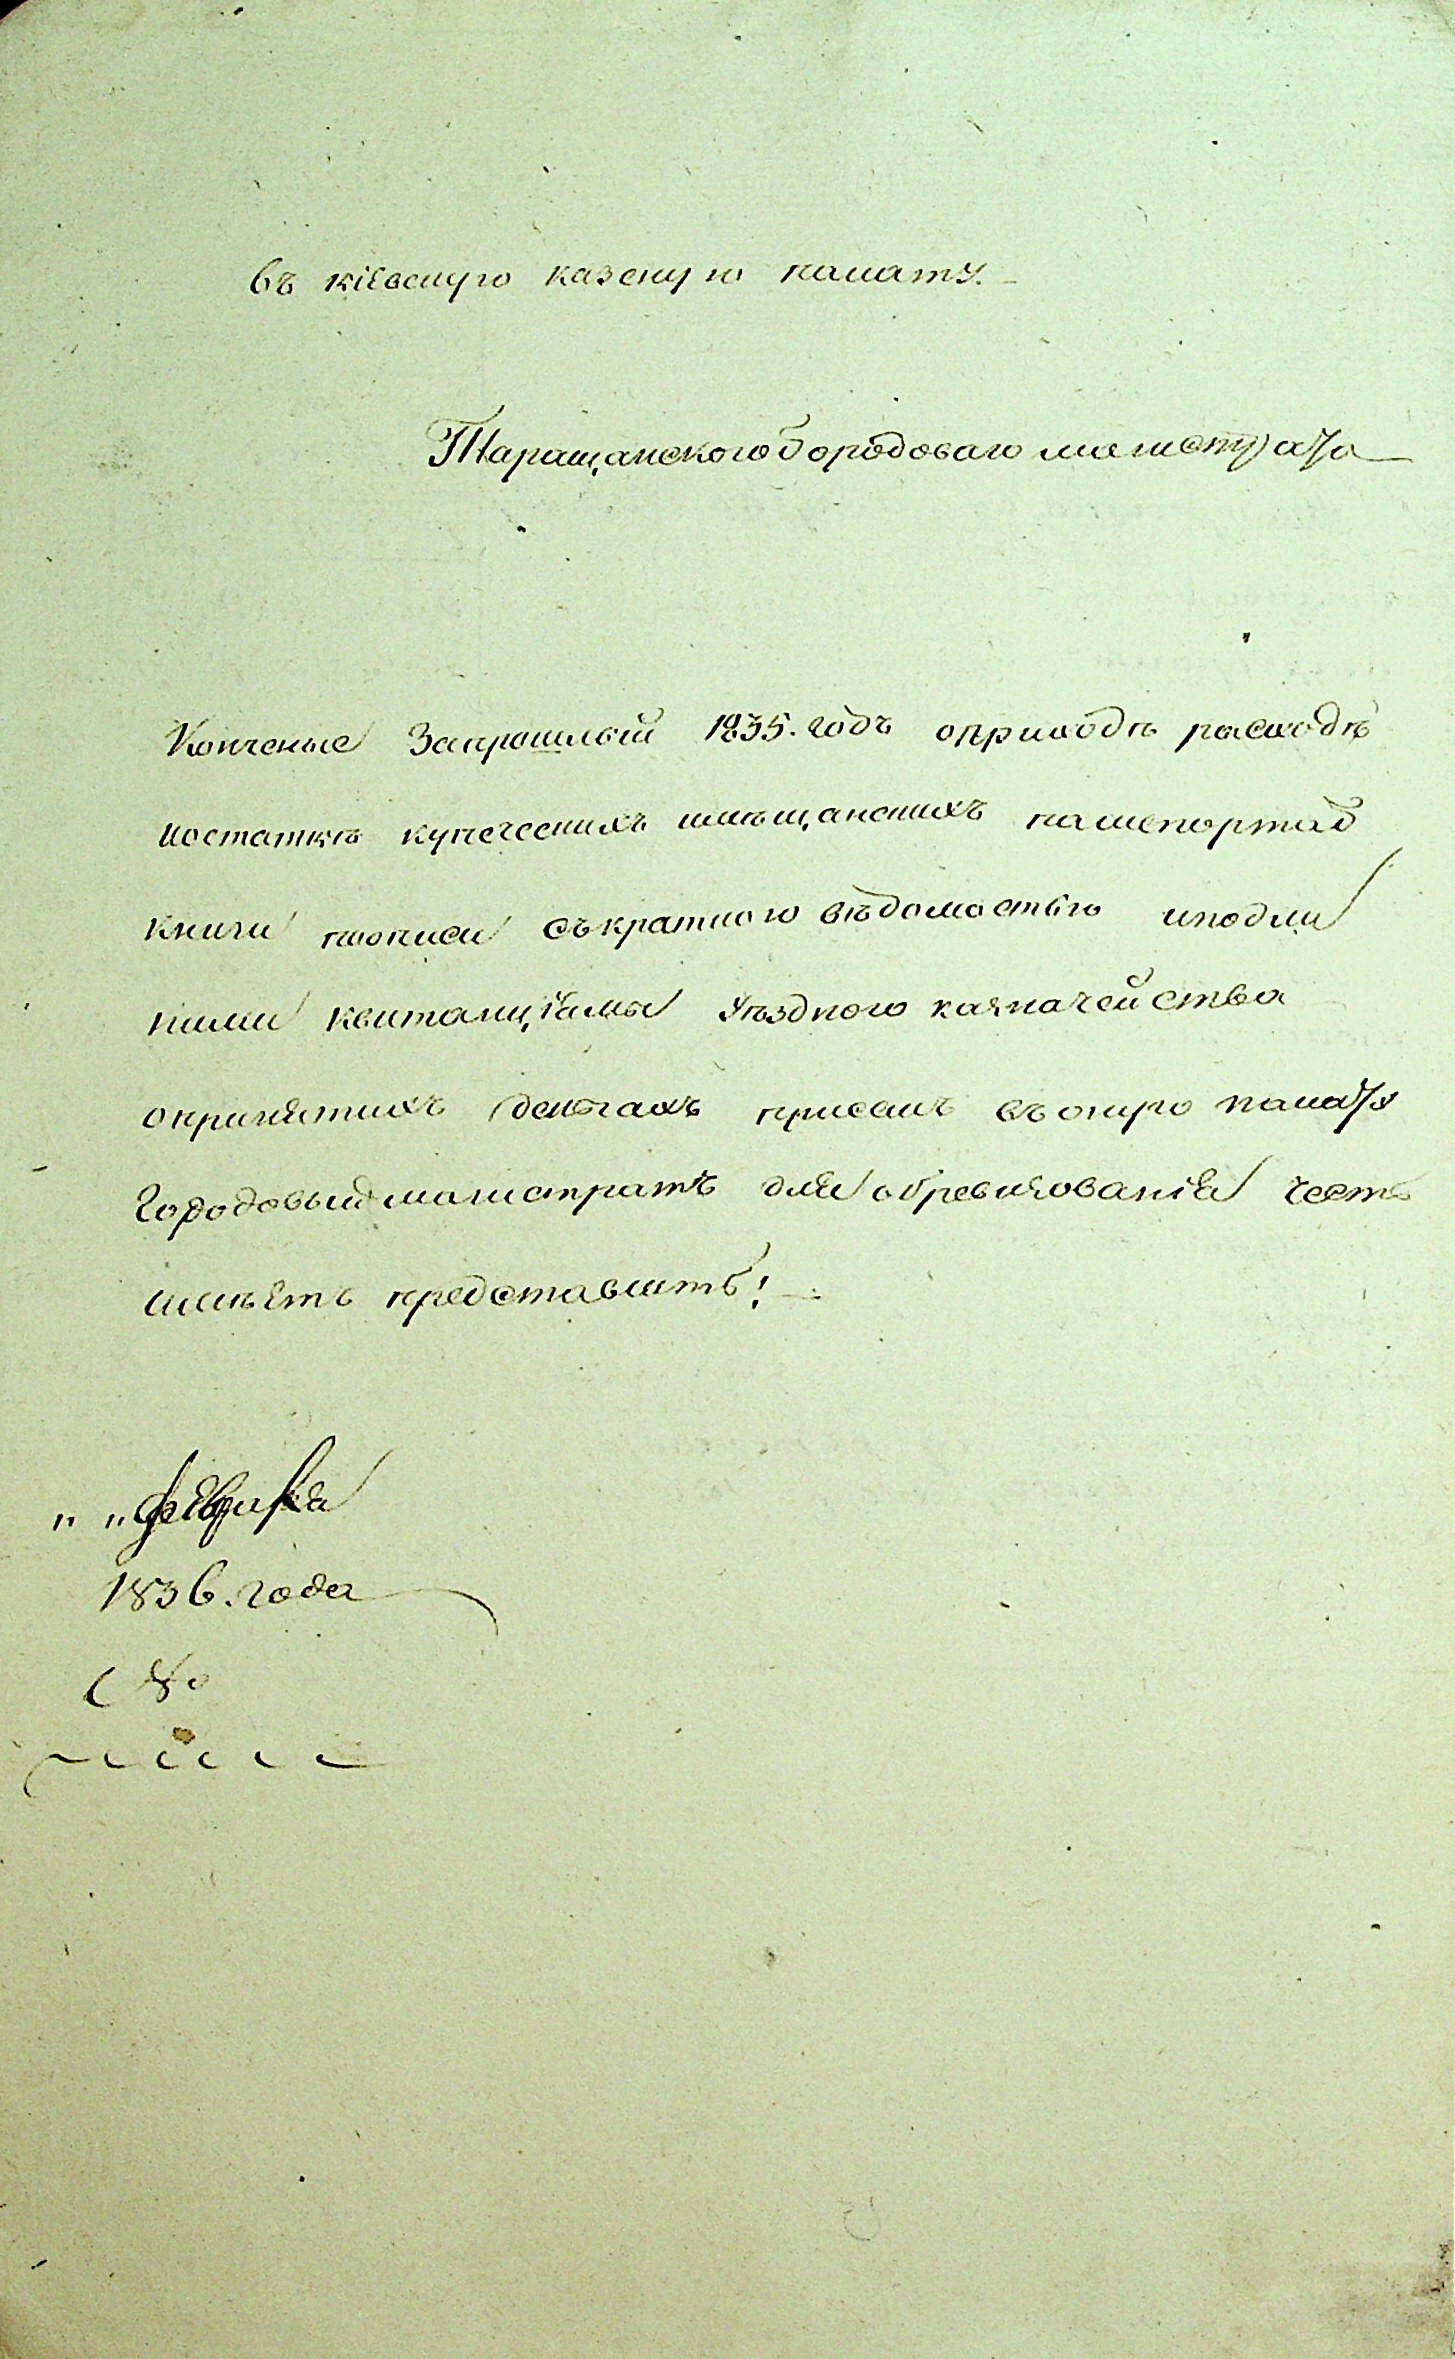 Въ кіевскую казеную палату.
Таращанского городоваго магистрата
Конченые Запрошлый 1835. годъ оприходѣ расходѣ
иостаткѣ купеческихъ имѣщанскихъ пашепортав
книги съкраткою вѣдомостью иподли
ними квитанціямы уѣздного казначейства
опринятихъ деньгахъ присемъ въ оную палату
Городовый магистратъ для обревизованія честь
имѣетъ представить!
" " февраля
1836. года
№